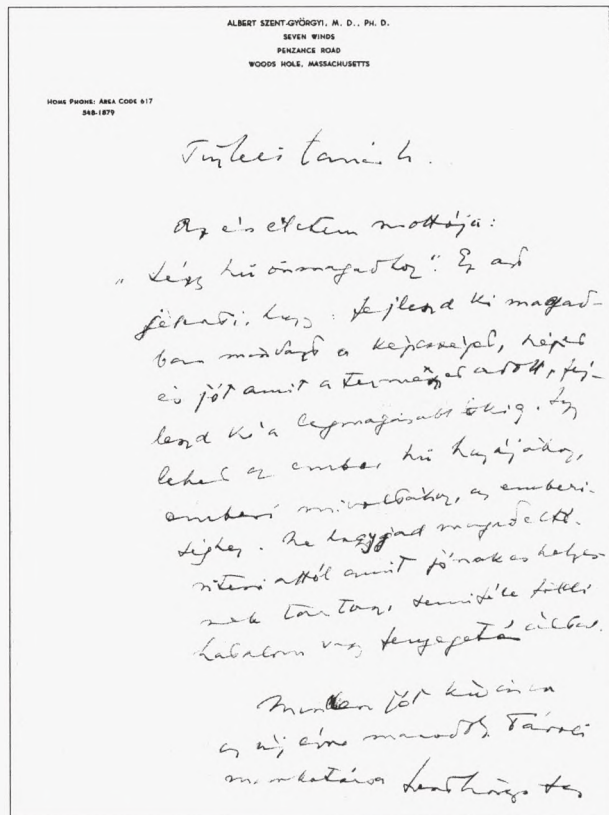 ALBERT SZENT-GYÖRGYI, M. D., PH. D.
SEVEN WINDS
PENZANCE ROAD
WOODS HOLE, MASSACHUSETTS
HOME PHONE: AREA CODE 617
548-1879
Az én életem mottója:
„Légy hű önmagadhoz". Ez azt
jelenti, hogy: fejleszd ki magad-
ban mindazt a képességet, szépet
és jót amit a természet adott, fej-
leszd ki a legmagasabb fokig. Így
lehet az ember hű hazájához,
emberi mivoltához, az emberi-
séghez. Ne hagyjad magad elté-
ríteni attól amit jónak és helyes-
nek tartasz, semmiféle földi
hatalom vagy fenyegetés által.
Minden jót kívánva
az új évre maradok
munkatársa Szent-Györgyi